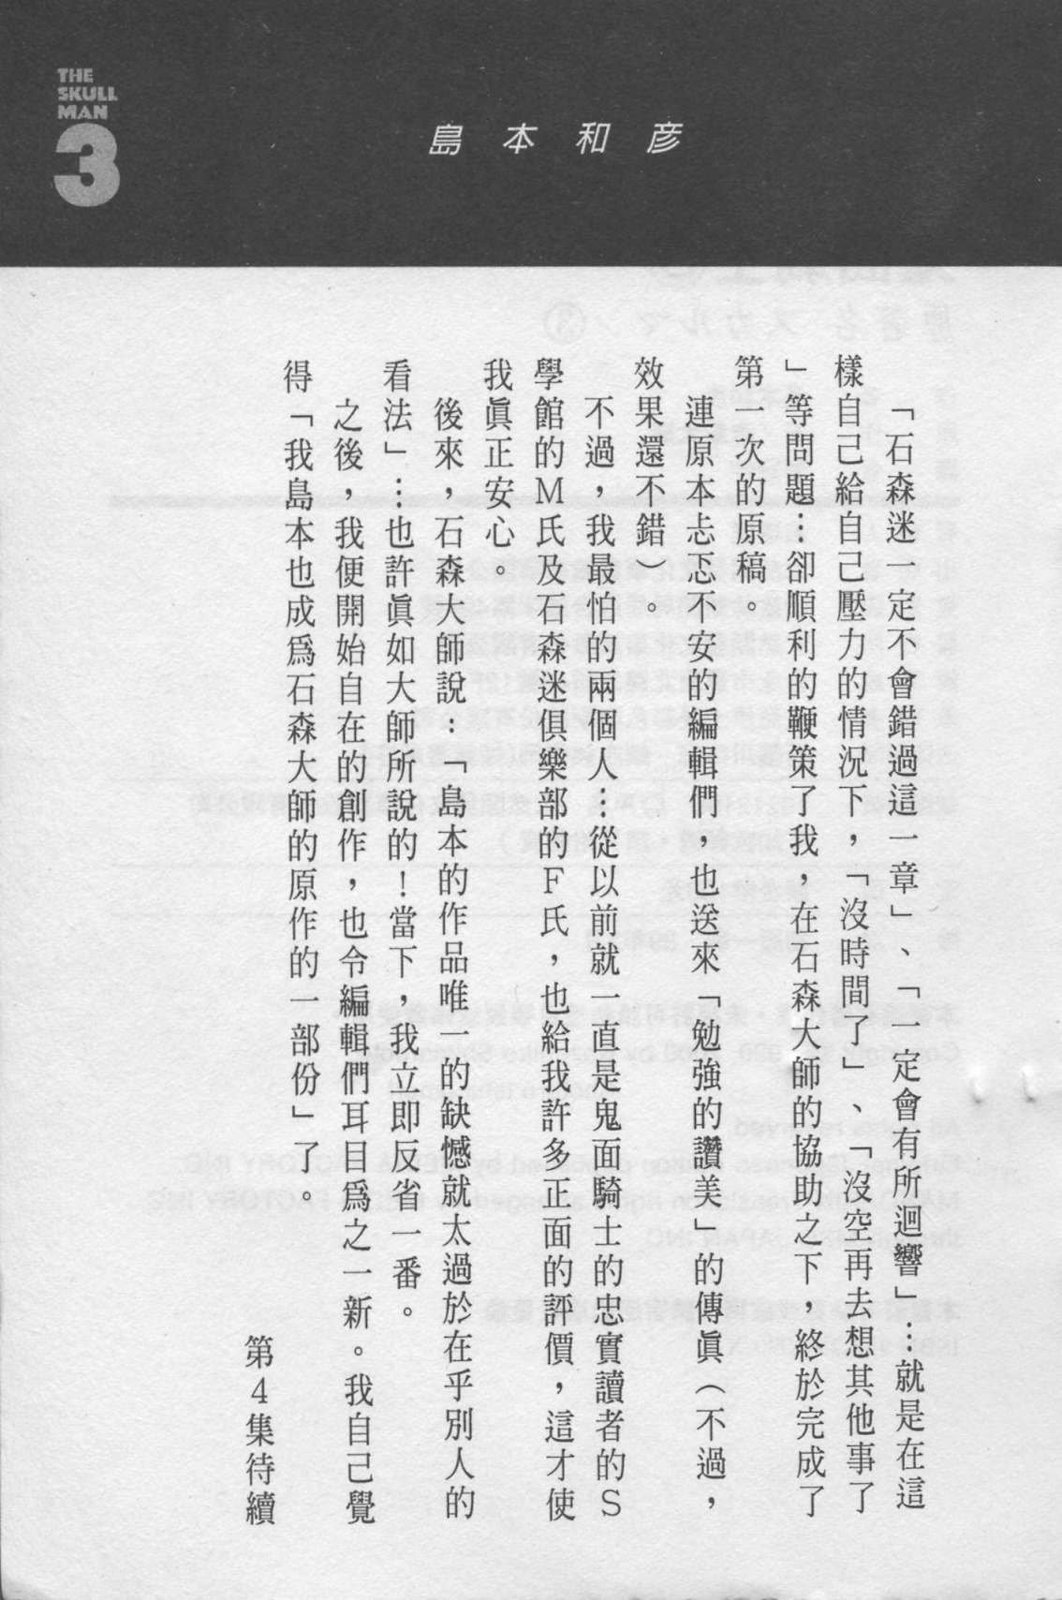 THE
SKULL
MAN
3
島本和彦
「石森迷一定不會錯過這一章」、「一定會有所迴響」…就是在這
樣自己給自己壓力的情況下，「沒時間了」、「沒空再去想其他事了
」等問題…卻順利的鞭策了我，在石森大師的協助之下，終於完成了
第一次的原稿。
連原本忐忑不安的編輯們，也送來「勉強的讚美」的傳眞（不過，
效果還不錯）。
不過，我最怕的兩個人…從以前就一直是鬼面騎士的忠實讀者的S
學館的M氏及石森迷俱樂部的F氏，也給我許多正面的評價，這才使
我眞正安心。
後來，石森大師說：「島本的作品唯一的缺憾就太過於在乎別人的
看法」…也許眞如大師所說的！當下，我立即反省一番。
之後，我便開始自在的創作，也令編輯們耳目爲之一新。我自己覺
得「我島本也成爲石森大師的原作的一部份」了。
第4集待續